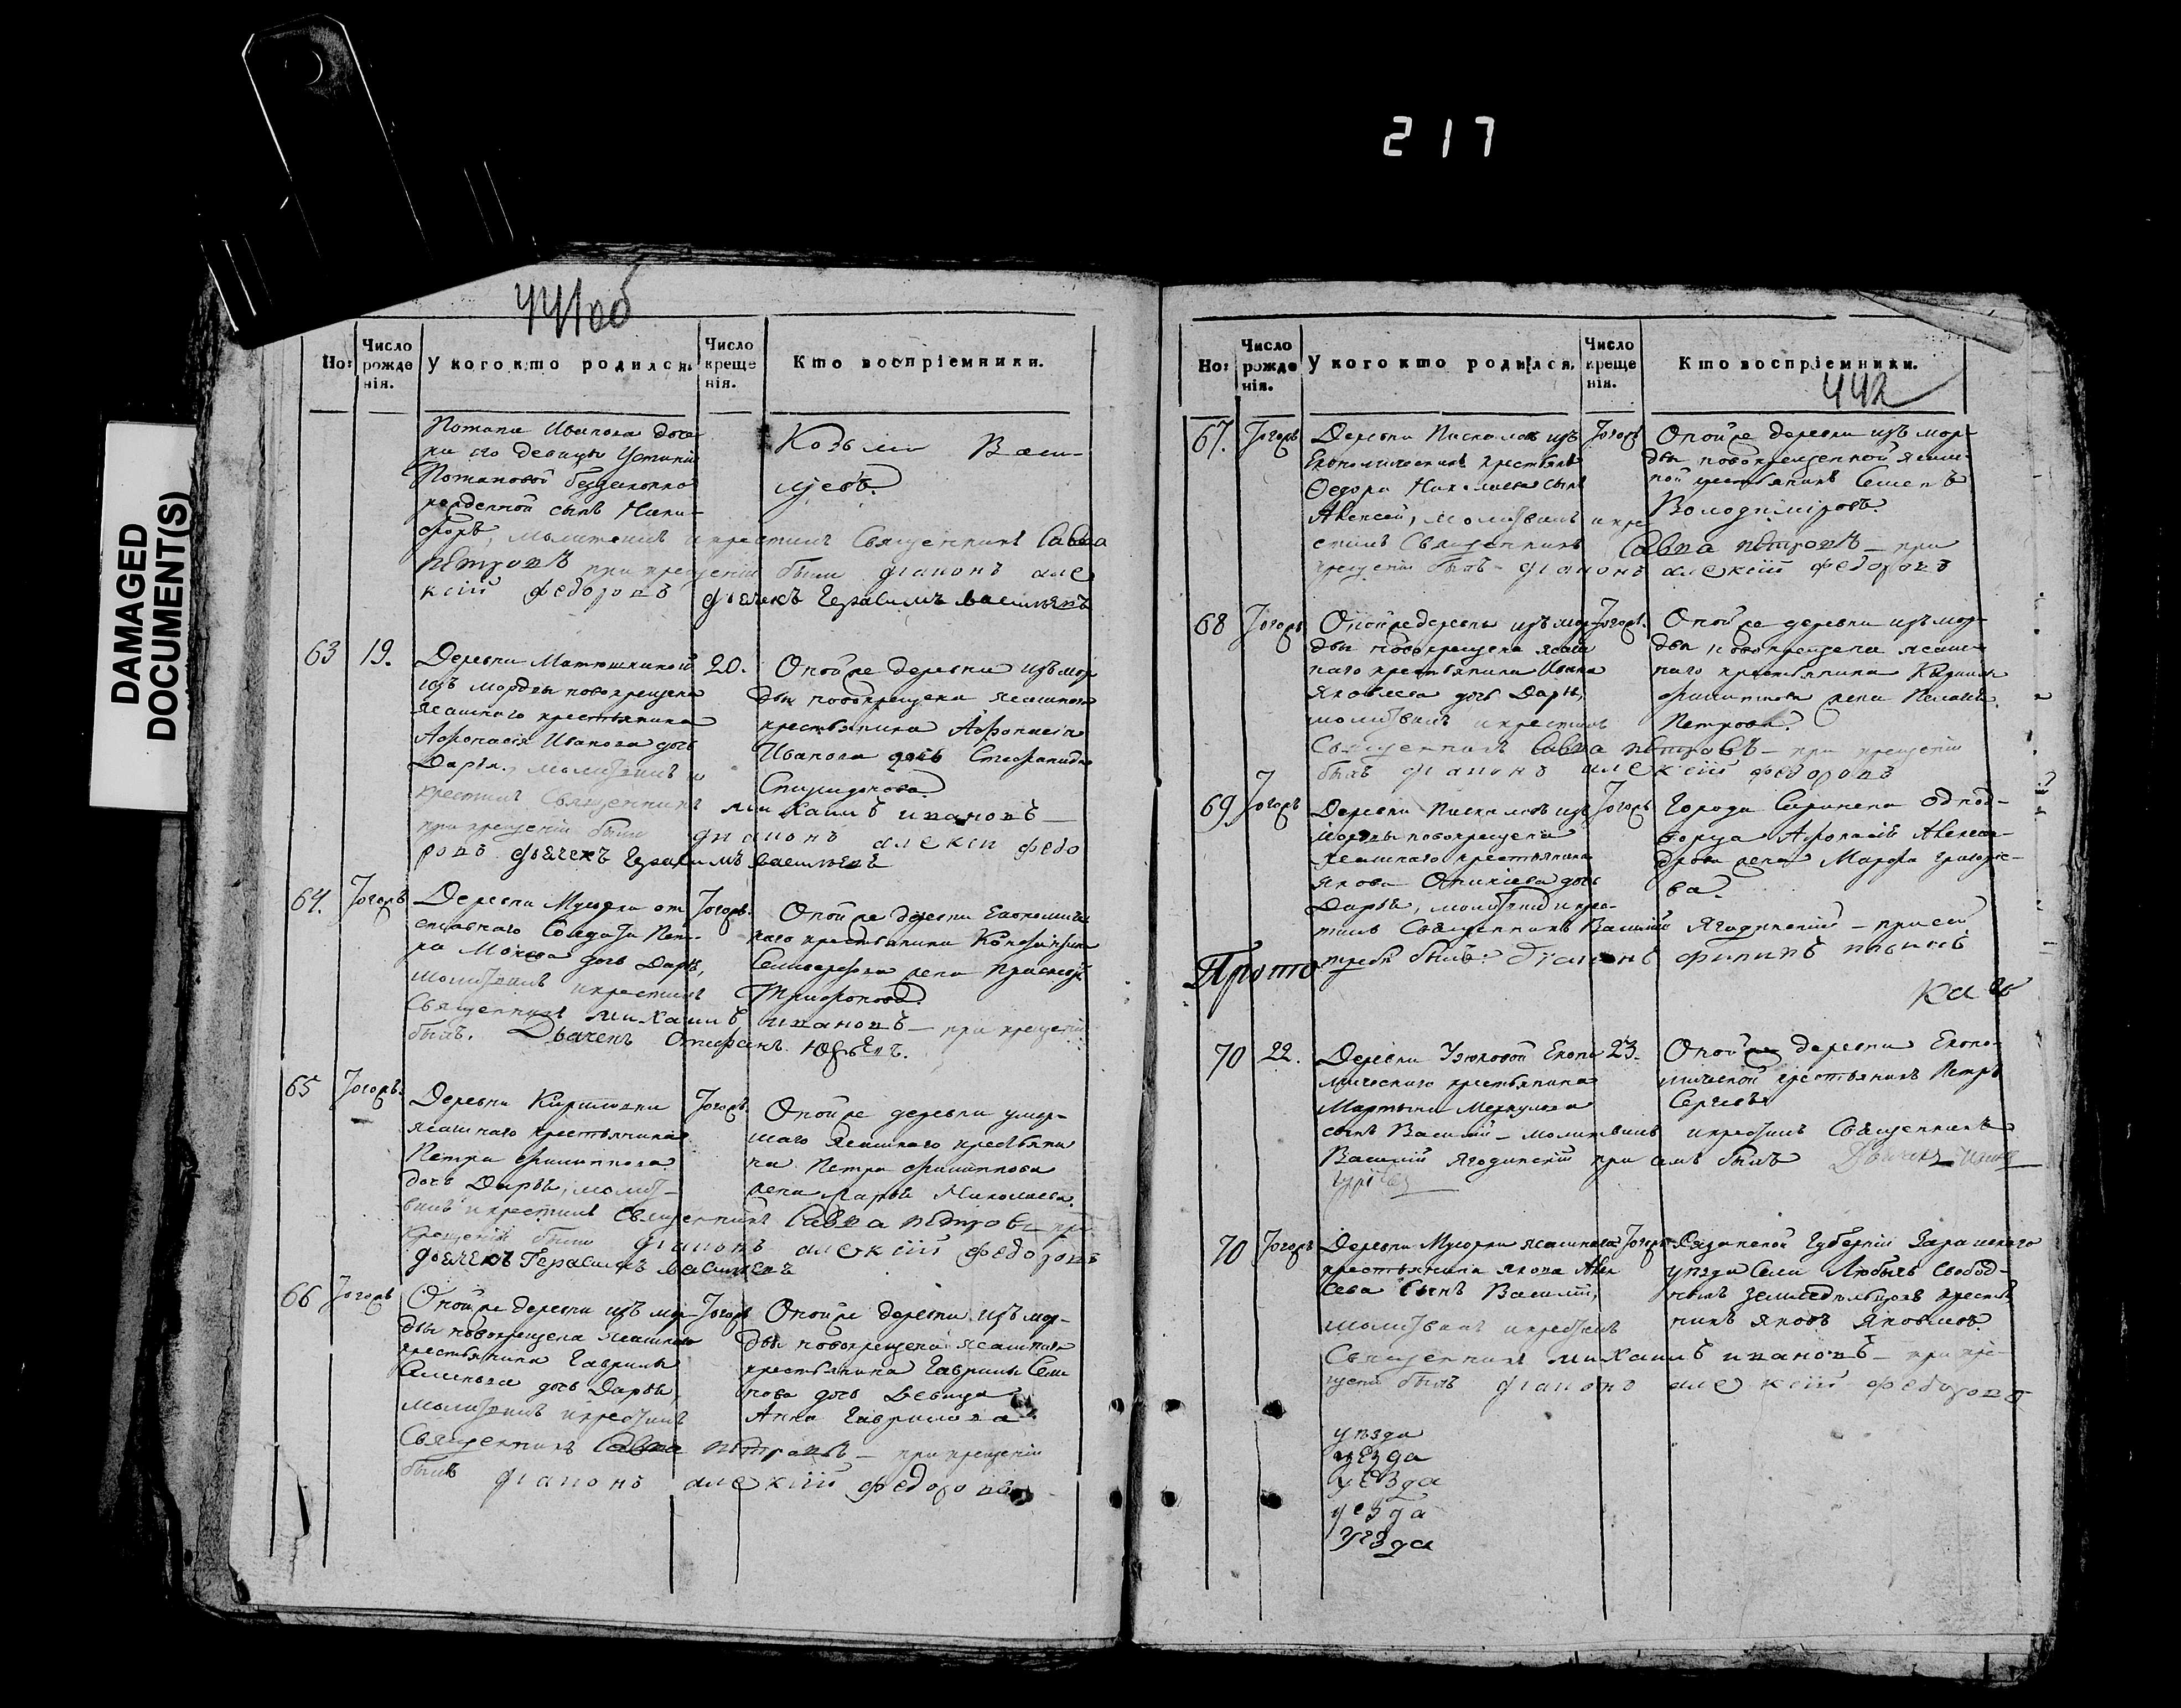 217
DAMAGED
DOCUMENT(S)
441об
Но:
Число рожденія.
У кого кто родился.
Число крещенія.
Кто воспріемники.
Потапа Иванова доче-
ри его девицы Устиніи
Потаповой беззаконно
рожденной сынъ Ники-
форъ, молитвилъ и крестилъ Священникъ Савва
Петровъ при крещеніи были діаконъ але
ксій федоровъ дьячекъ Герасимъ васильевъ
Козьма Васи-
льевъ.
63 19.
Деревни Матюшкиной
изъ мордвы новокрещена
ясашного крестьянина
Афонасія Иванова дочь
Дарья, молитвилъ и
крестилъ Священникъ михаилъ ивановъ
при крещеніи были діаконъ алексеи федо
ровъ дьячекъ Герасимъ васильевъ
20.
Опой же деревни изъ мор
двы новокрещена ясашного
крестьянина Афонасія
Иванова дочь Стефанида
Спиридонова
64. Тогожъ
Деревни Мусорки от
ставного Солдата Пет-
ра Мокеева дочь Дарья,
молитвилъ и крестилъ
Священникъ михаилъ ивановъ при крещеніи
былъ. Дьячекъ Стефанъ Юрьевъ.
Тогожъ.
Опой же деревни Економиче
наго крестьянина
Селиверстова жена
Трифонова
65 Тогожъ.
Деревни Кириловки
ясашнаго крестьянина
Петра филиппова
дочь Дарья, молит-
вилъ и крестилъ Священникъ Савва петровъ при
крещеніи были діаконъ алексій федоровъ
дьячекъ Герасимъ васильевъ
Тогожъ.
Опой же деревни умер-
шаго ясашнаго крестьяни
на Петра филиппова
жена Марья Николаева.
66 Тогожъ
Опой же деревни изъ мор-
двы новокрещена ясашнаго
крестьянина Гаврилы
Семенова дочь Дарья,
молитвилъ и крестилъ
Священникъ Савва петровъ при крещеніи
былъ діаконъ алексій федоровъ
Тогожъ
Опой же деревни изъ мор-
двы новокрещена ясашнаго
крестьянина Гаврилы Семе
нова дочь Девица
Анна Гаврилова
Но:
Число рожденія.
У кого кто родился.
Число крещенія.
Кто воспріемники.
442
67. Тогожъ
Деревни Пискаловъ изъ
Економическихъ крестьянъ
Федора Николаева сынъ
Алексей, молитвилъ и кре
стилъ Священникъ Савва петровъ при
крещеніи былъ діаконъ алексій федоровъ
Тогожъ
Опой же деревни изъ мор-
двы новокрещенной ясаш-
ной крестьянинъ Семенъ
Володимировъ.
68 Тогожъ
Опой же деревни изъ мор-
двы новокрещена ясаш
наго крестьянина Ивана
Яковлева дочь Дарья,
молитвилъ и крестилъ
Священникъ Савва петровъ при крещеніи
былъ діаконъ алексій федоровъ
Тогожъ.
Опой же деревни изъ мор-
двы новокрещена ясаш-
наго крестьянина
филиппова жена
Петрова.
69. Тогожъ
Деревни Пискаловъ изъ
мордвы новокрещена
ясашнаго крестьянина
Якова дочь
Дарья, молитвилъ и кре-
стилъ Священникъ Василій Ягодинскій при сей
требе былъ: Діаконъ филипъ
Тогожъ
Города Сызрана однод-
ворца Афонасія Алексан-
дрова жена Марфа Григорье-
ва.
Прото
70 22.
Деревни Узюковой Еконо
мического крестьянина
Мартына Меркулова
сынъ Василій молитвилъ и крестилъ Священникъ
Василій Ягодинскій при семъ былъ Дьячекъ
23.
Опой же деревни Еконо-
мической крестьянинъ Петръ
Сергеевъ
70 Тогожъ
Деревни Мусорки ясашнаго
крестьянина Якова Алек
сеева сынъ Василій,
молитвилъ и крестилъ
Священникъ михаилъ ивановъ при кре-
щеніи былъ діаконъ алексій федоровъ
Тогожъ
Рязанской Губерніи Зарайскаго
уезда Села Любичъ Свобод-
ныхъ земледельцовъ крестья
нинъ Яковъ Яковлевъ.
уезда
уезда
уезда
уезда
уезда